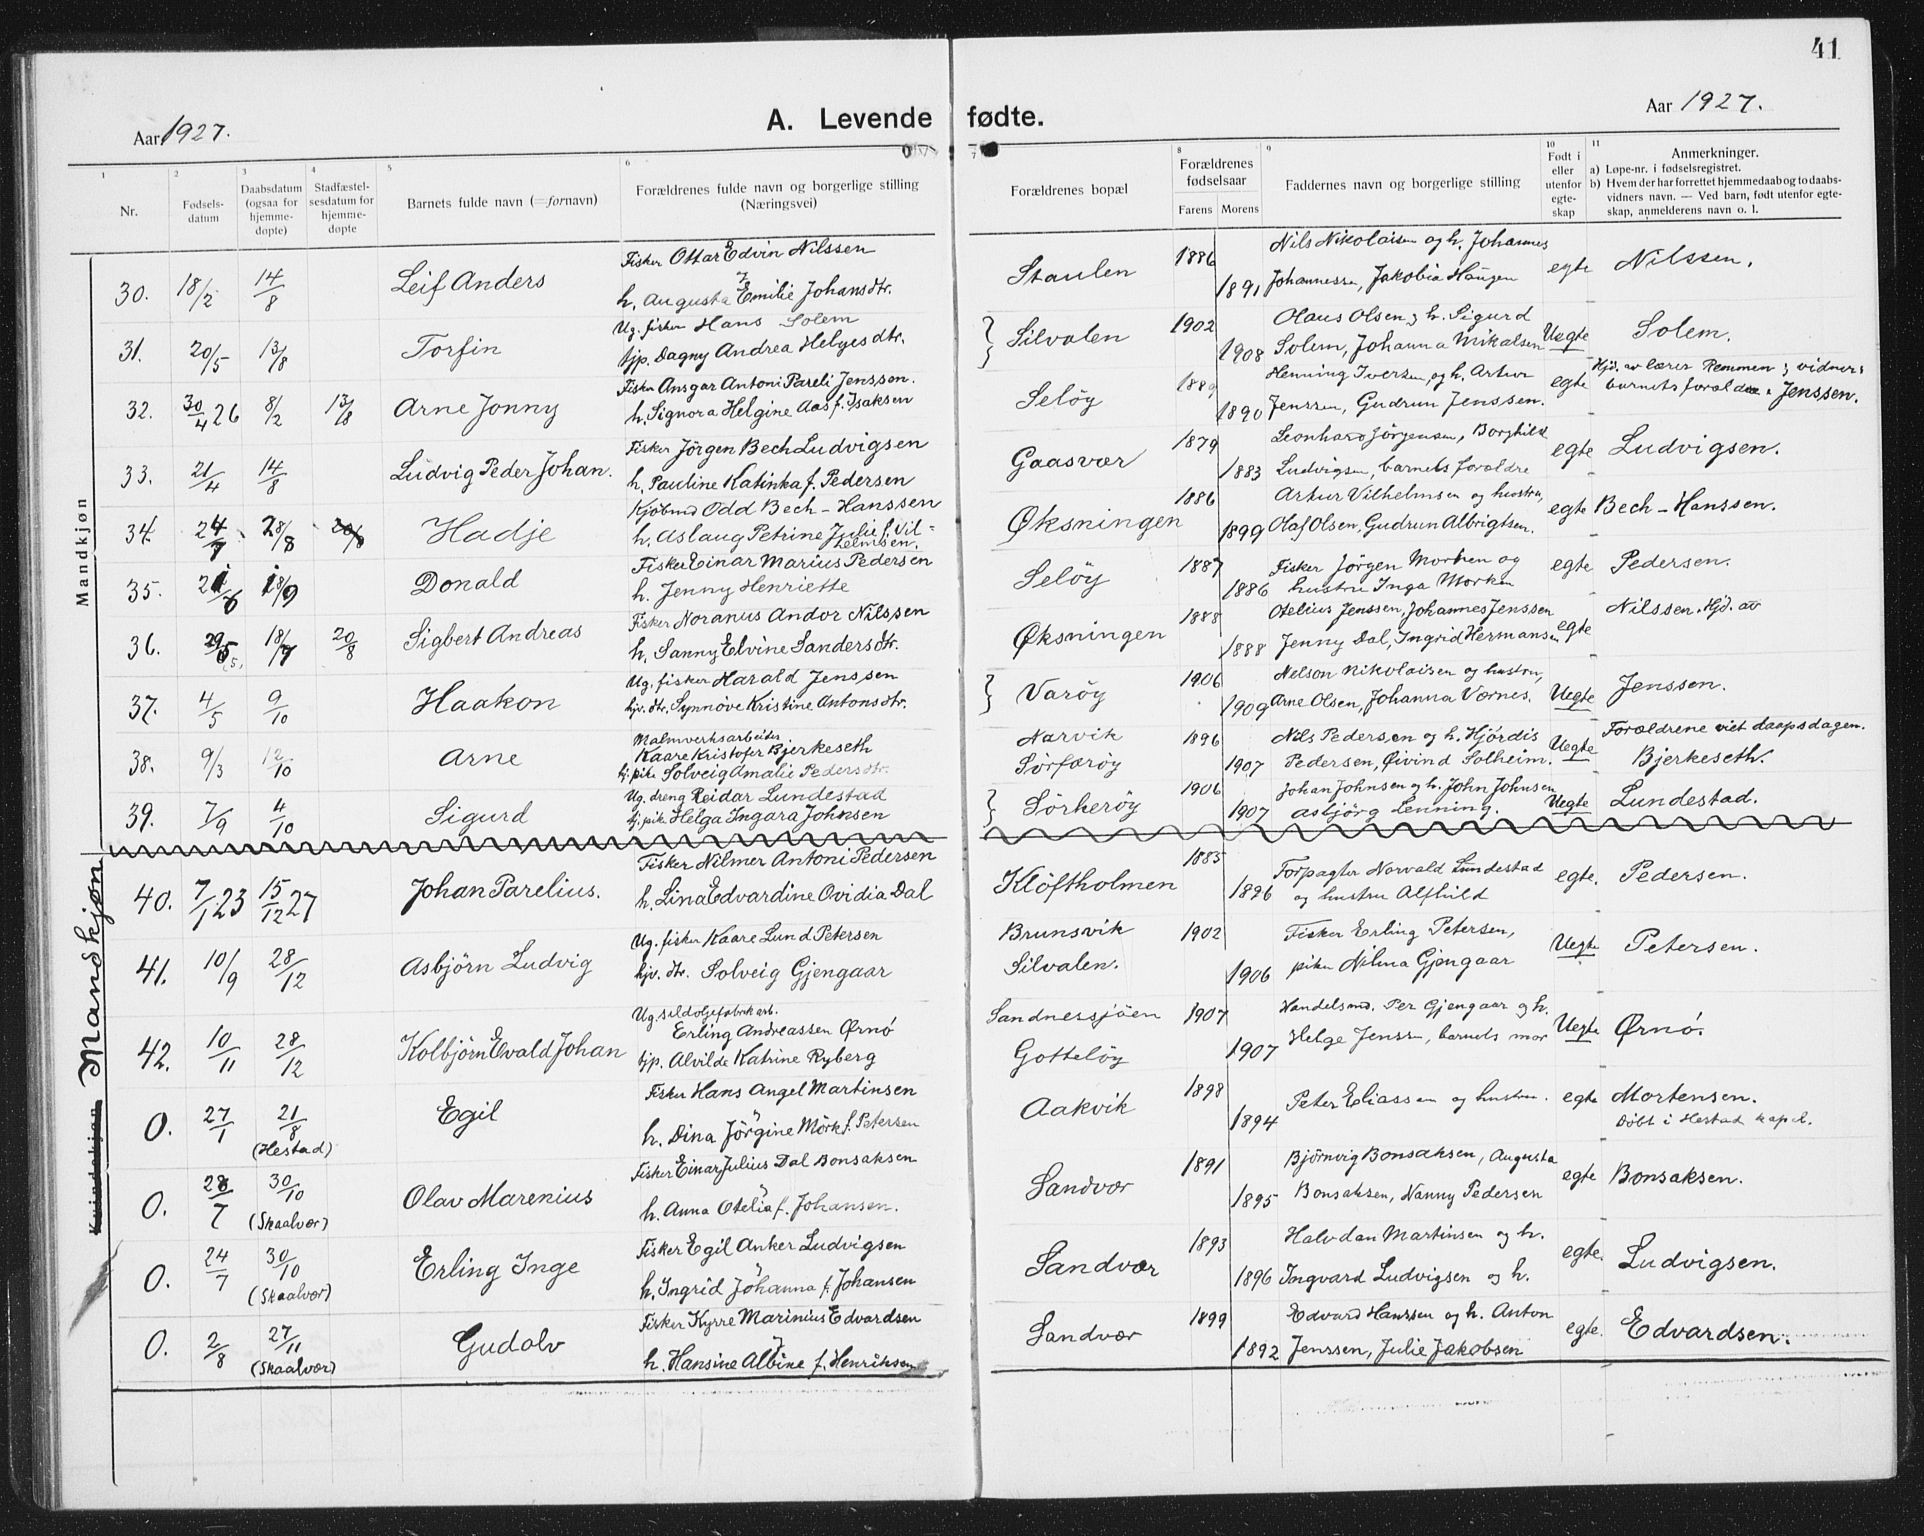 41
Aar 1927.
A. Levende fødte.
Aar 1927.
1
2
3
4
5
6
7
8
9
10
11
Nr.
Fødsels-
datum
Daabsdatum
(ogsaa for
hjemme-
døpte)
Stadfæstel-
sesdatum for
hjemme-
døpte
Barnets fulde navn (= fornavn)
Forældrenes fulde navn og borgerlige stilling
(Næringsvei)
Forældrenes bopæl
Forældrenes
fødselsaar
Farens Morens
Faddernes navn og borgerlige stilling
Født i
eller
utenfor
egte-
skap
Anmerkninger.
a) Løpe-nr. i fødselsregistret.
b) Hvem der har forrettet hjemmedaab og to daabs-
vidners navn. — Ved barn, født utenfor egte-
skap, anmelderens navn o. l.
Mandkjøn
30. 18/2 14/8 Leif Anders
Fisker Ottar Edvin Nilssen
h. Augusta Emilie Johansdtr.
Staulen 1886 1891
Nils Nikolaisen og h. Johannes
Johannessen, Jakobia Haugen
egte Nilssen.
31. 20/5 13/8 Torfin
Ug. fisker Hans Solem
tjp. Dagny Andrea Helgesdtr.
Silvalen 1902 1908
Olaus Olsen, h. Sigurd
Solem, Johanna Mikalsen
Uegte Solem.
32. 30/4 26 8/2 13/8 Arne Jonny
Fisker Ansgar Antoni Pareli Jenssen.
h. Signora Helgine Aas f. Isaksen
Seløy 1889 1890
Henning Iversen, og h. Artur
Jenssen, Gudrun Jenssen.
egte Hjd. av lærer Remmen; vidner:
barnets forældre. Jenssen.
33. 21/4 14/8 Ludvig Peder Johan.
Fisker Jörgen Bech Ludvigsen
h. Pauline Katinka f. Pedersen
Gaasvær 1879 1883
Leonhard Jörgensen, Borghild
Ludvigsen, barnets forældre
egte Ludvigsen.
34. 24/7 28/8 Hadje
Kjøbmd Odd Bech-Hanssen
h. Aslaug Petrine Julie f. Vil-
helmsen.
Øksningen 1886 1899
Artur Vilhelmsen og hustru,
Olaf Olsen, Gudrun Albrigtsen.
egte Bech-Hanssen.
35. 21/6 18/9 Donald
Fisker Einar Marius Pedersen
h. Jenny Henriette
Seløy 1887 1886
Fisker Jörgen Morken og
hustru Inga Morken
egte Pedersen.
36. 29/5 18/7 20/8 Sigbert Andreas
Fisker Noranus Andor Nilssen
h. Sanny Elvine Sandersdtr.
Øksningen 1888 1888
Otelius Jenssen, Johannes Jenssen
Jenny Dal, Ingrid Hermansen
egte Nilssen. Hjd. av
37. 4/5 9/10 Haakon
Ug. fisker Harald Jenssen
hjv. dtr. Synnöve Kristine Antonsdtr.
Varøy 1906 1909
Nelson Nikolaisen og hustru,
Arne Olsen, Johanna Værnes.
Uegte Jenssen.
38. 9/3 12/10 Arne
Malmverksarbeider
Kaare Kristofer Bjerkeseth
tj. pike Solveig Amalie Pedersdtr.
Narvik
Sørfærøy 1896 1907
Nils Pedersen og h. Hjördis
Pedersen, Øivind Solheim.
Uegte Forældrene viet daapsdagen.
Bjerkeseth.
39. 7/9 4/10 Sigurd
Ug. dreng Reidar Lundestad
tj. pik. Helga Ingara Johnsen
Sörkerøy 1906 1907
Johan Johnsen og h. John Johnsen
Asbjörg Lenning.
Uegte Lundestad.
Kvindekjøn Mandkjøn
40. 7/1 23 15/12 27 Johan Parelius.
Fisker Nilmer Antoni Pedersen
h. Lina Edvardine Ovidia Dal
Klöftholmen 1885 1896
Forpagter Norvald Lundestad
og hustru Alfhild
egte. Pedersen.
41. 10/9 28/12 Asbjörn Ludvig
Ug. fisker Kaare Lund Petersen
hjv. dtr. Solveig Gjengaar
Brunsvik
Silvalen. 1902 1906
Fisker Erling Petersen,
pike Nilma Gjengaar
Uegte Petersen.
42. 10/11 28/12 Kolbjörn Evald Johan
Ug. sildoljefabrikarb.
Erling Andreassen Ørnö
tjp. Alvilde Katrine Ryberg
Sandnessjöen
Gotteløy 1907 1907
Handelsmd. Per Gjengaar og h.
Helge Jenssen, barnets mor
Uegte Ørnö.
0. 27/1 21/8 (Hestad) Egil
Fisker Hans Angel Martinsen
h. Dina Jörgine Mörk f. Petersen
Aakvik 1898 1894
Peter Eliassen og hustru.
egte Mortensen.
Döbt i Hestad kapel.
0. 28/7 30/10 (Skaalvær) Olav Marenius
Fisker Einar Julius Dal Bonsaksen
h. Anna Otelia f. Johansen.
Sandvær 1891 1895
Björnvig Bonsaksen, Augusta
Bonsaksen, Nanny Pedersen
egte Bonsaksen.
0. 24/7 30/10 (Skaalvær) Erling Inge
Fisker Egil Anker Ludvigsen
h. Ingrid Johanna f. Johansen
Sandvær 1893 1896
Halvdan Martinsen og h.
Ingvard Ludvigsen og h.
egte. Ludvigsen.
0. 2/8 27/11 (Skaalvær) Gudolv
Fisker Kyrre Marinius Edvardsen
h. Hansine Albine f. Henriksen
Sandvær 1899 1892
Edvard Hanssen og h. Anton
Jenssen, Julie Jakobsen
egte. Edvardsen.